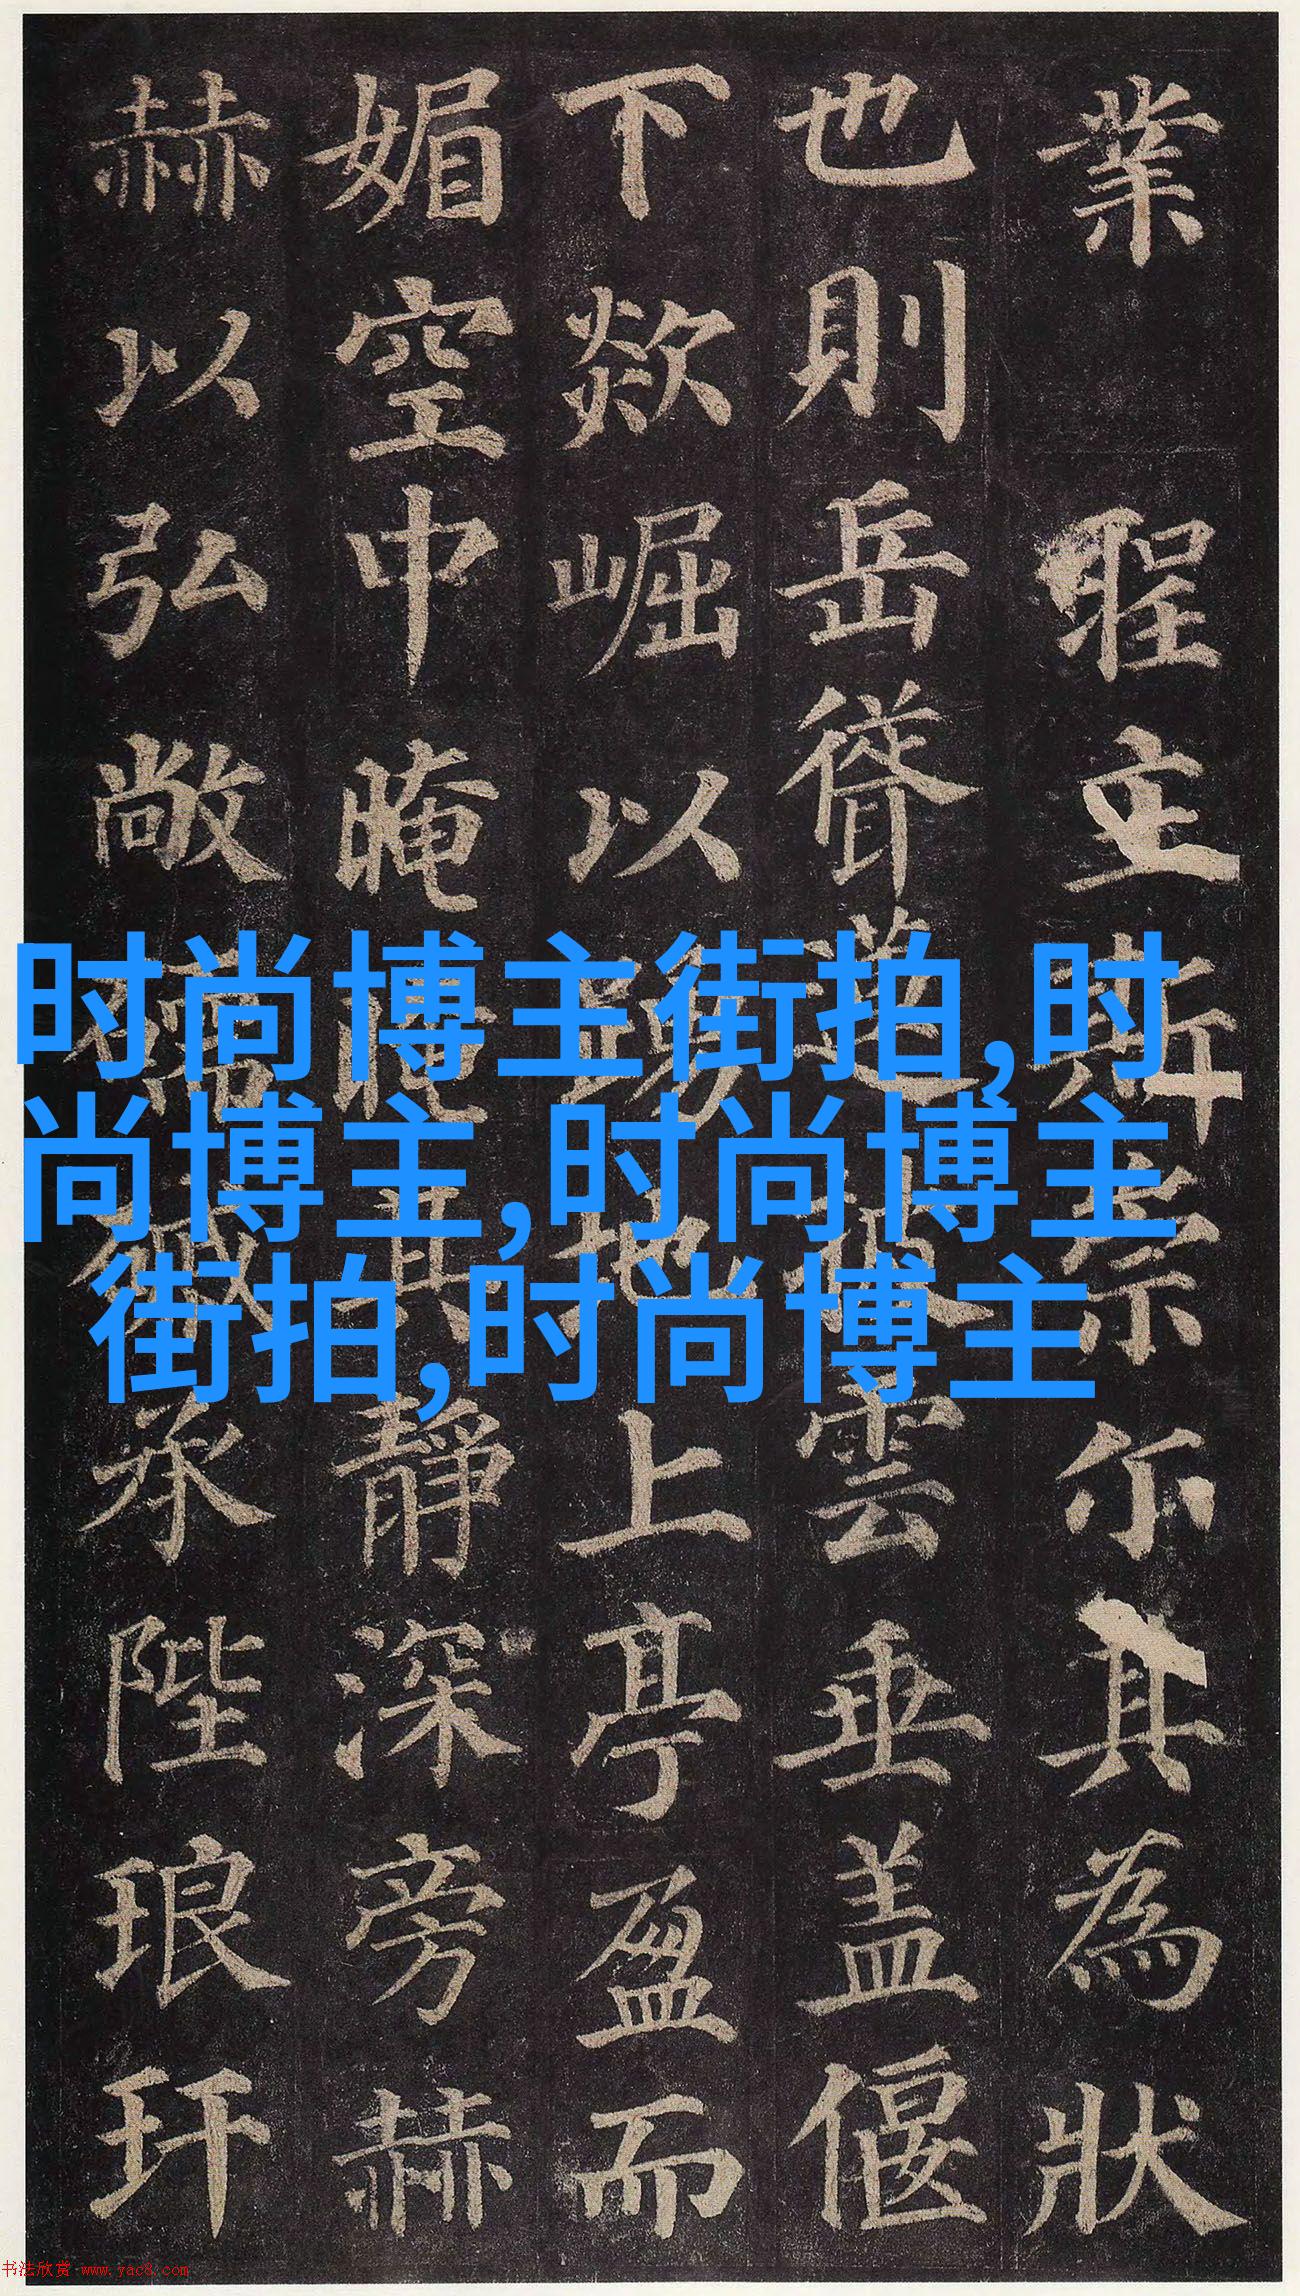 業聖立斯崇尓其為狀
也則岳聳蓮披雲垂盖偃
下欻崛以踴地上亭盈而
媚空中晻晻其靜深旁赫
赫以弘敞承陛琅玕
时尚博主街拍,时
尚博主,时尚博主
街拍,时尚博主
书法欣赏 www.yac8.com